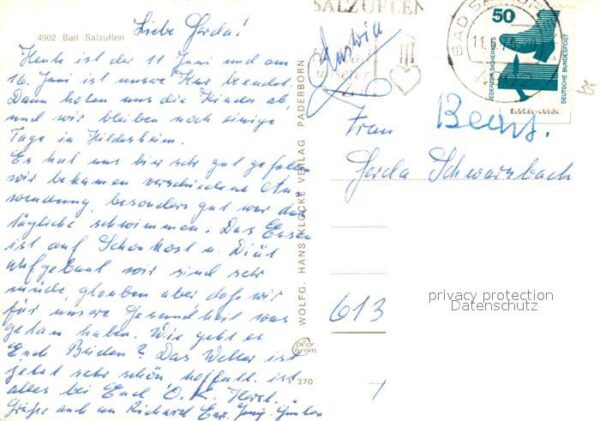 4902 Bad Salzuflen
Liebe Gerda!
Heute ist der 11 Juni und am
16. Juni ist unsere Kur beendet.
Dann holen uns die Kinder ab,
und wir bleiben noch einige
Tage in Hildesheim.
Es hat uns hier sehr gut gefallen
wir bekamen verschiedene An
wendung, besonders gut war das
tägliche schwimmen. Das Essen
ist auf Schonkost u. Diät
aufgebaut wir sind sehr
müde, glauben aber das wir
für unsere Gesundheit was
getan haben. Wie geht es
Euch Beiden? Das Wetter ist
jetzt sehr schön, hoffentl. ist
alles bei Euch O.K. Herzl.
Grüße auch an Richard
WOLFG. HANS KLOCKE VERLAG PADERBORN
270
SALZUFLEN
BAD SALZUFLEN
50
JEDERZEIT SICHERHEIT
DEUTSCHE BUNDESPOST
35
Austria
Frau
Gerda Schwarzbach
613
privacy protection
Datenschutz